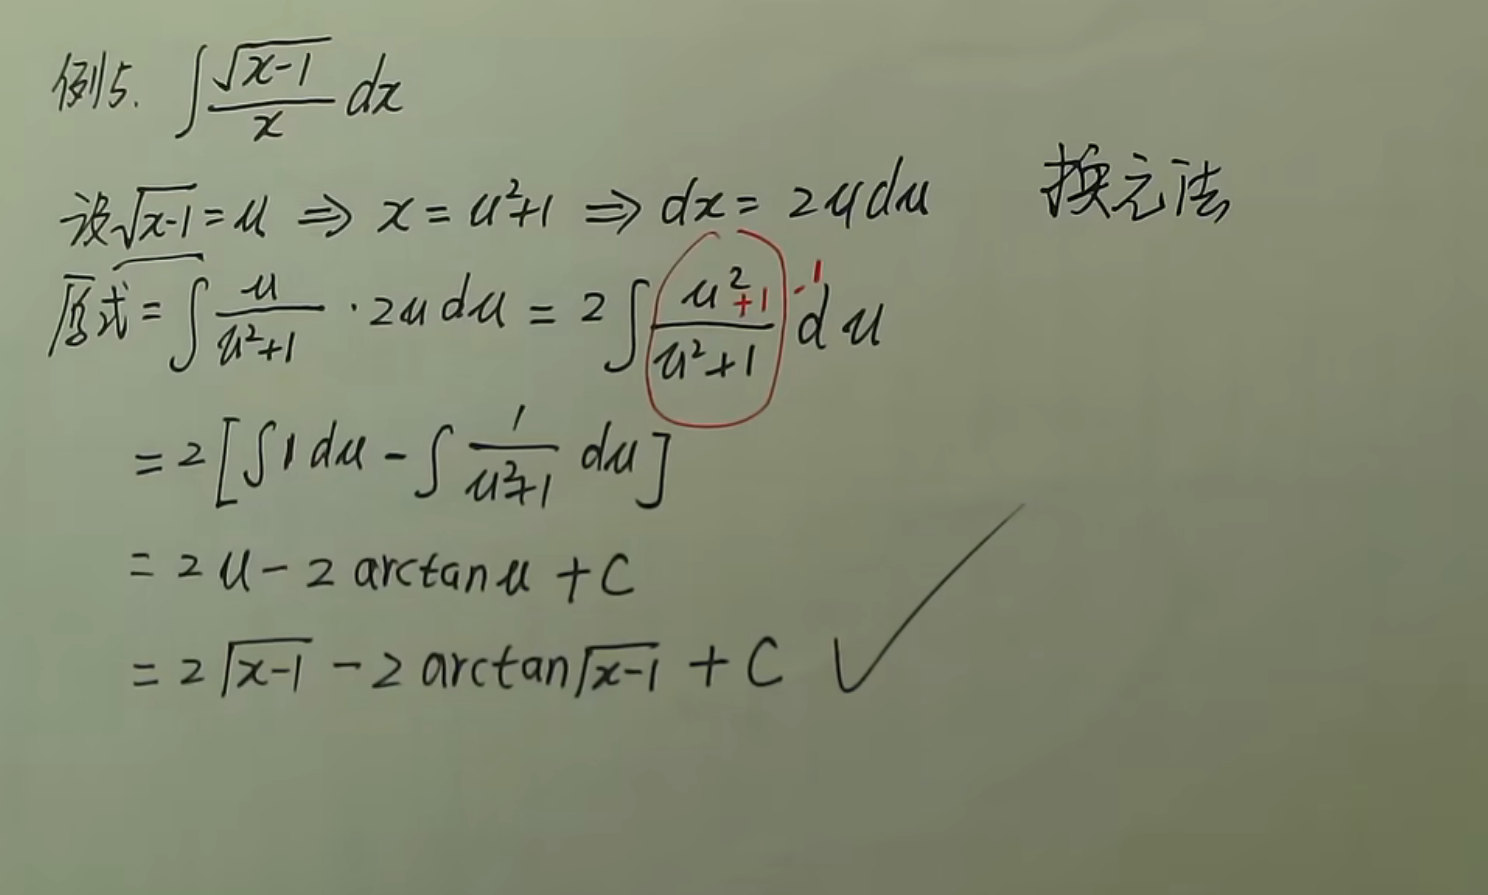 例5. ∫ √(x-1)/x dx
设√(x-1) = u ⇒ x = u²+1 ⇒ dx = 2udu 换元法
原式 = ∫ u/(u²+1) · 2udu = 2∫ (u²+1)/(u²+1) -1 du
= 2[∫1du - ∫ 1/(u²+1) du]
= 2u - 2arctanu + C
= 2√(x-1) - 2arctan√(x-1) + C ✓